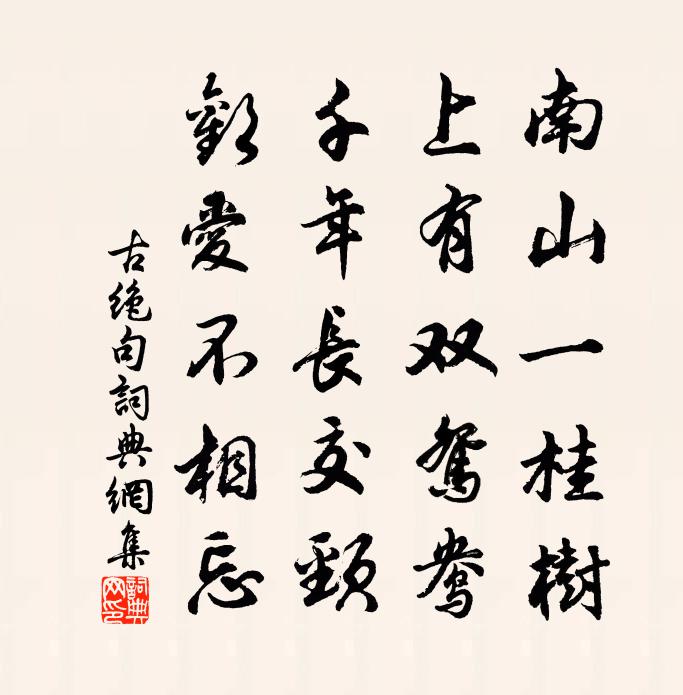 南山一桂樹
上有双鴛鴦
千年長交頸
歡愛不相忘
古絶句詞典網集
詞典網印